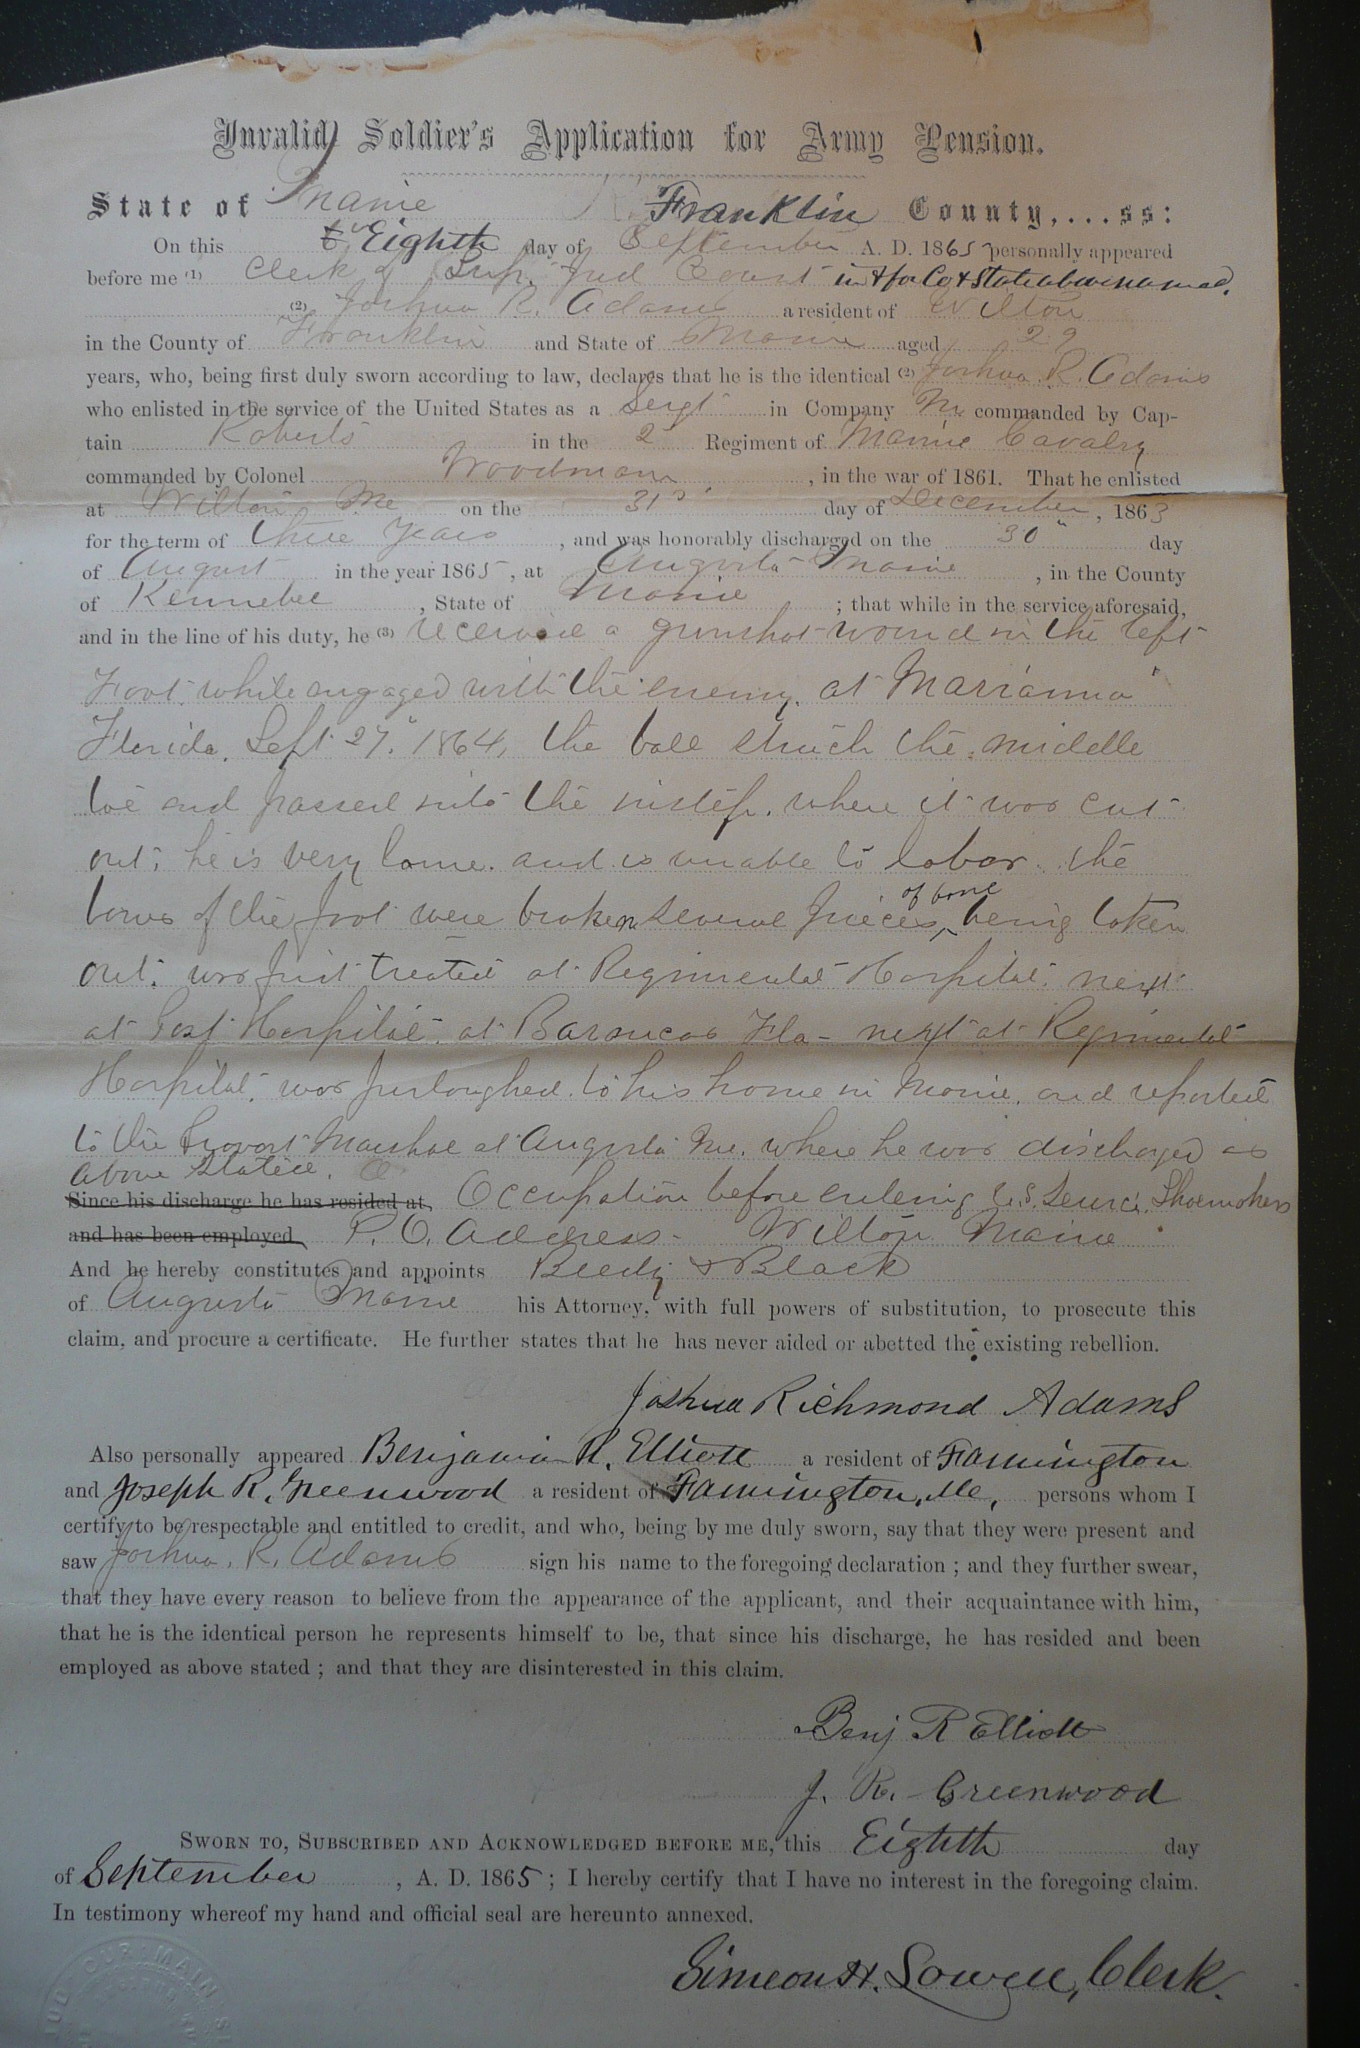 Invalid Soldier's Application for Army Pension.
State of Maine Franklin County,....ss:
On this Eighth day of September A. D. 1865 personally appeared
before me (1) Clerk of Sup. Jud Court in & for Co & State above named.
(2) Joshua R. Adams a resident of Wilton
in the County of Franklin and State of Maine aged 29
years, who, being first duly sworn according to law, declares that he is the identical (2) Joshua R. Adams
who enlisted in the service of the United States as a Sergt in Company M commanded by Cap-
tain Roberts in the 2" Regiment of Maine Cavalry
commanded by Colonel Woodman, in the war of 1861. That he enlisted
at Wilton Me on the 31st day of December, 1863
for the term of three years, and was honorably discharged on the 30" day
of August in the year 1865, at Augusta Maine, in the County
of Kennebec, State of Maine; that while in the service aforesaid,
and in the line of his duty, he (3) received a gunshot wound in the left
Foot while engaged with the enemy, at Marianna"
Florida, Sept 27" 1864, the ball struck the middle
toe and passed into the instep, where it was cut
out; he is very lame, and is unable to labor. the
bones of the foot were broken several pieces of bone being taken
out. was first treated at Regimental Hospital. next
at Post Hospital at Barancas Fla - next at Regimental
Hospital, was furloughed to his home in Maine, and reported
to the Provost Marshal at Augusta Me. where he was discharged as
above stated.
Since his discharge he has resided at Occupation before entering U.S. Service Shoemaker
and has been employed P. O. Address - Wilton Maine
And he hereby constitutes and appoints Beedy & Black
of Augusta Maine his Attorney, with full powers of substitution, to prosecute this
claim, and procure a certificate. He further states that he has never aided or abetted the existing rebellion.
Joshua Richmond Adams
Also personally appeared Benjamin R. Elliott a resident of Farmington
and Joseph R. Greenwood a resident of Farmington, Me, persons whom I
certify to be respectable and entitled to credit, and who, being by me duly sworn, say that they were present and
saw Joshua. R. Adams sign his name to the foregoing declaration; and they further swear,
that they have every reason to believe from the appearance of the applicant, and their acquaintance with him,
that he is the identical person he represents himself to be, that since his discharge, he has resided and been
employed as above stated; and that they are disinterested in this claim.
Benj R Elliott
J. R. Greenwood
Sworn to, Subscribed and Acknowledged before me, this Eighth day
of September, A. D. 1865; I hereby certify that I have no interest in the foregoing claim.
In testimony whereof my hand and official seal are hereunto annexed.
Simeon H. Lowell, Clerk.